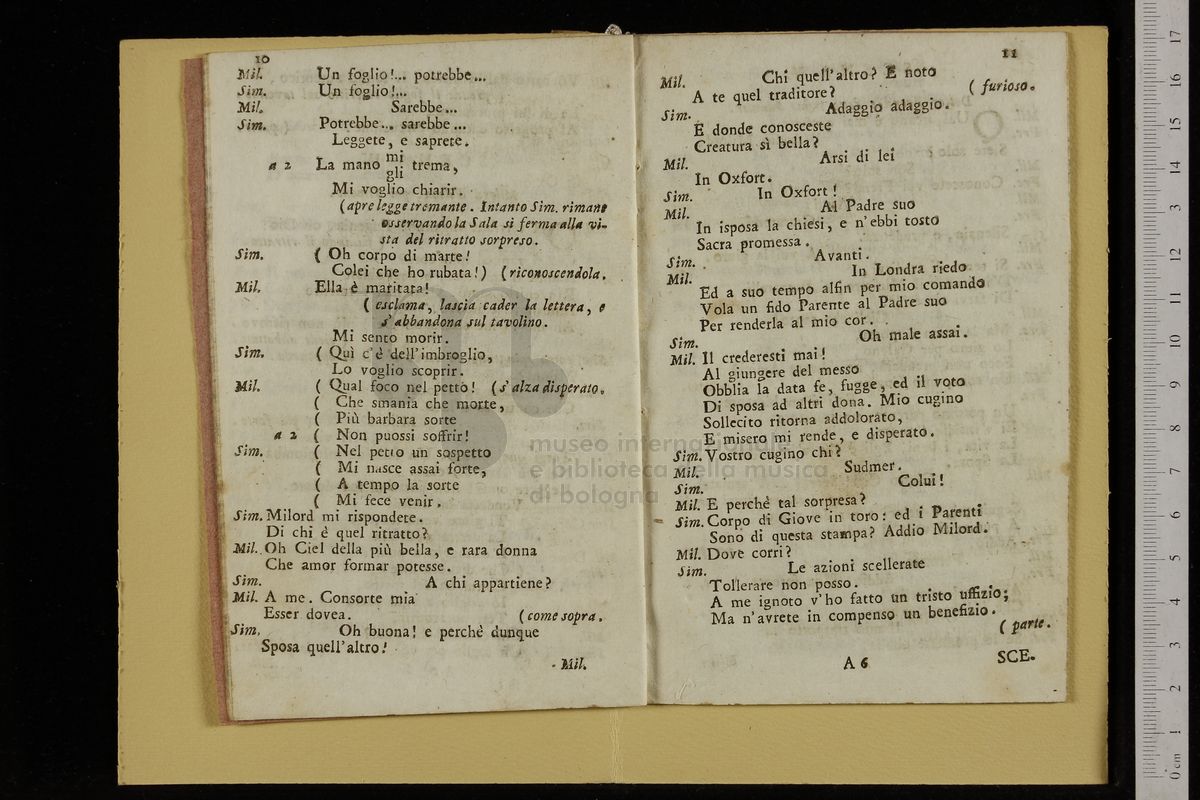 10
Mil. Un foglio!... potrebbe...
Sim. Un foglio!...
Mil. Sarebbe...
Sim. Potrebbe... sarebbe...
Leggete, e saprete.
a 2 La mano mi gli trema,
Mi voglio chiarir.
(apre legge tremante. Intanto Sim. rimane
osservando la Sala si ferma alla vi-
sta del ritratto sorpreso.
Sim. ( Oh corpo di marte!
Colei che ho rubata!) (riconoscendola.
Mil. Ella è maritata!
( esclama, lascia cader la lettera, e
s'abbandona sul tavolino.
Mi sento morir.
Sim. ( Quì c'è dell'imbroglio,
Lo voglio scoprir.
Mil. ( Qual foco nel petto! (s'alza disperato.
( Che smania che morte,
( Più barbara sorte
a 2 ( Non puossi soffrir!
Sim. ( Nel petto un sospetto
( Mi nasce assai forte,
( A tempo la sorte
( Mi fece venir.
Sim. Milord mi rispondete.
Di chi è quel ritratto?
Mil. Oh Ciel della più bella, e rara donna
Che amor formar potesse.
Sim. A chi appartiene?
Mil. A me. Consorte mia
Esser dovea. (come sopra.
Sim. Oh buona! e perchè dunque
Sposa quell'altro!
Mil.
11
Mil. Chi quell'altro? E noto
A te quel traditore? ( furioso.
Sim. Adaggio adaggio.
E donde conosceste
Creatura sì bella?
Mil. Arsi di lei
In Oxfort.
Sim. In Oxfort!
Mil. Al Padre suo
In isposa la chiesi, e n'ebbi tosto
Sacra promessa.
Sim. Avanti.
Mil. In Londra riedo
Ed a suo tempo alfin per mio comando
Vola un fido Parente al Padre suo
Per renderla al mio cor.
Sim. Oh male assai.
Mil. Il crederesti mai!
Al giungere del messo
Obblia la data fe, fugge, ed il voto
Di sposa ad altri dona. Mio cugino
Sollecito ritorna addolorato,
E misero mi rende, e disperato.
Sim. Vostro cugino chi?
Mil. Sudmer.
Sim. Colui!
Mil. E perchè tal sorpresa?
Sim. Corpo di Giove in toro: ed i Parenti
Sono di questa stampa? Addio Milord.
Mil. Dove corri?
Sim. Le azioni scellerate
Tollerare non posso.
A me ignoto v'ho fatto un tristo uffizio;
Ma n'avrete in compenso un benefizio.
( parte.
A 6 SCE.
museo internazionale
e biblioteca della musica
di bologna
0 cm 1 2 3 4 5 6 7 8 9 10 11 12 13 14 15 16 17